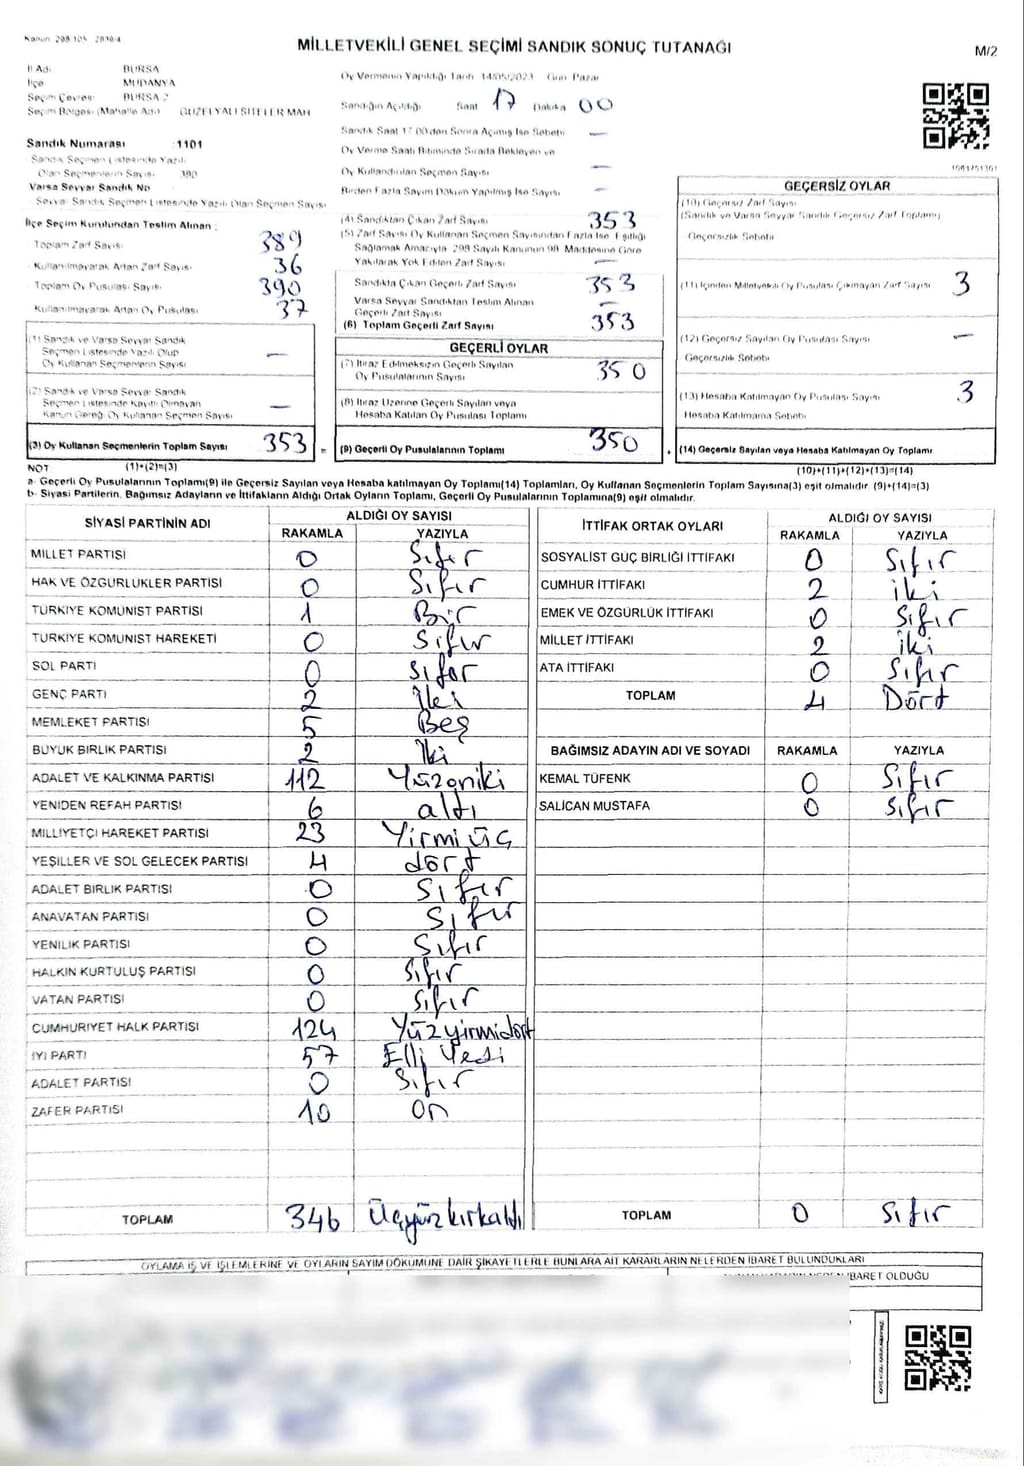 Kanun 298/105 2839/4
MİLLETVEKİLİ GENEL SEÇİMİ SANDIK SONUÇ TUTANAĞI
M/2
İl Adı BURSA
İlçe MUDANYA
Seçim Çevresi BURSA 2
Seçim Bölgesi (Mahalle Adı) GÜZELYALI SİTELER MAH
Sandık Numarası : 1101
Sandık Seçmen Listesinde Yazılı
Olan Seçmen Sayısı 380
Varsa Seyyar Sandık No
Seyyar Sandık Seçmen Listesinde Yazılı Olan Seçmen Sayısı
Oy Vermenin Yapıldığı Tarih 14/05/2023 Gün Pazar
Sandığın Açıldığı Saat 17 Dakika 00
Sandık Saat 17.00'den Sonra Açılmış İse Sebebi —
Oy Verme Saati Bitiminde Sırada Bekleyen ve
Oy Kullandırılan Seçmen Sayısı —
Birden Fazla Sayım Döküm Yapılmış İse Sayısı —
İlçe Seçim Kurulundan Teslim Alınan :
Toplam Zarf Sayısı 389
Kullanılmayarak Artan Zarf Sayısı 36
Toplam Oy Pusulası Sayısı 390
Kullanılmayarak Artan Oy Pusulası 37
(1) Sandık ve Varsa Seyyar Sandık
Seçmen Listesinde Yazılı Olup
Oy Kullanan Seçmenlerin Sayısı —
(2) Sandık ve Varsa Seyyar Sandık
Seçmen Listesinde Kayıtlı Olmayan
Kanun Gereği Oy Kullanan Seçmen Sayısı —
(3) Oy Kullanan Seçmenlerin Toplam Sayısı 353
(4) Sandıktan Çıkan Zarf Sayısı 353
(5) Zarf Sayısı Oy Kullanan Seçmen Sayısından Fazla İse Eşitliği
Sağlamak Amacıyla 298 Sayılı Kanunun 98. Maddesine Göre
Yakılarak Yok Edilen Zarf Sayısı —
Sandıkta Çıkan Geçerli Zarf Sayısı 353
Varsa Seyyar Sandıktan Teslim Alınan
Geçerli Zarf Sayısı —
(6) Toplam Geçerli Zarf Sayısı 353
GEÇERLİ OYLAR
(7) İtiraz Edilmeksizin Geçerli Sayılan
Oy Pusulalarının Sayısı 350
(8) İtiraz Üzerine Geçerli Sayılan veya
Hesaba Katılan Oy Pusulası Toplamı
= (9) Geçerli Oy Pusulalarının Toplamı 350
GEÇERSİZ OYLAR
(10) Geçersiz Zarf Sayısı
(Sandık ve Varsa Seyyar Sandık Geçersiz Zarf Toplamı)
Geçersizlik Sebebi
(11) İçinden Milletvekili Oy Pusulası Çıkmayan Zarf Sayısı 3
(12) Geçersiz Sayılan Oy Pusulası Sayısı —
Geçersizlik Sebebi
(13) Hesaba Katılmayan Oy Pusulası Sayısı 3
Hesaba Katılmama Sebebi
+ (14) Geçersiz Sayılan veya Hesaba Katılmayan Oy Toplamı
NOT (1)+(2)=(3) (10)+(11)+(12)+(13)=(14)
a- Geçerli Oy Pusulalarının Toplamı(9) ile Geçersiz Sayılan veya Hesaba katılmayan Oy Toplamı(14) Toplamları, Oy Kullanan Seçmenlerin Toplam Sayısına(3) eşit olmalıdır. (9)+(14)=(3)
b- Siyasi Partilerin, Bağımsız Adayların ve İttifakların Aldığı Ortak Oyların Toplamı, Geçerli Oy Pusulalarının Toplamına(9) eşit olmalıdır.
SİYASİ PARTİNİN ADI ALDIĞI OY SAYISI
RAKAMLA YAZIYLA
MİLLET PARTİSİ 0 Sıfır
HAK VE ÖZGÜRLÜKLER PARTİSİ 0 Sıfır
TÜRKİYE KOMÜNİST PARTİSİ 1 Bir
TÜRKİYE KOMÜNİST HAREKETİ 0 Sıfır
SOL PARTİ 0 Sıfır
GENÇ PARTİ 2 İki
MEMLEKET PARTİSİ 5 Beş
BÜYÜK BİRLİK PARTİSİ 2 İki
ADALET VE KALKINMA PARTİSİ 112 Yüzoniki
YENİDEN REFAH PARTİSİ 6 altı
MİLLİYETÇİ HAREKET PARTİSİ 23 Yirmi üç
YEŞİLLER VE SOL GELECEK PARTİSİ 4 dört
ADALET BİRLİK PARTİSİ 0 Sıfır
ANAVATAN PARTİSİ 0 Sıfır
YENİLİK PARTİSİ 0 Sıfır
HALKIN KURTULUŞ PARTİSİ 0 Sıfır
VATAN PARTİSİ 0 Sıfır
CUMHURİYET HALK PARTİSİ 124 Yüzyirmidört
İYİ PARTİ 57 Elli Yedi
ADALET PARTİSİ 0 Sıfır
ZAFER PARTİSİ 10 On
TOPLAM 346 Üçyüzkırkaltı
İTTİFAK ORTAK OYLARI ALDIĞI OY SAYISI
RAKAMLA YAZIYLA
SOSYALİST GÜÇ BİRLİĞİ İTTİFAKI 0 Sıfır
CUMHUR İTTİFAKI 2 iki
EMEK VE ÖZGÜRLÜK İTTİFAKI 0 Sıfır
MİLLET İTTİFAKI 2 iki
ATA İTTİFAKI 0 Sıfır
TOPLAM 4 Dört
BAĞIMSIZ ADAYIN ADI VE SOYADI RAKAMLA YAZIYLA
KEMAL TÜFENK 0 Sıfır
SALİCAN MUSTAFA 0 Sıfır
TOPLAM 0 Sıfır
OYLAMA İŞ VE İŞLEMLERİNE VE OYLARIN SAYIM DÖKÜMÜNE DAİR ŞİKAYETLERLE BUNLARA AİT KARARLARIN NELERDEN İBARET BULUNDUKLARI
İBARET OLDUĞU